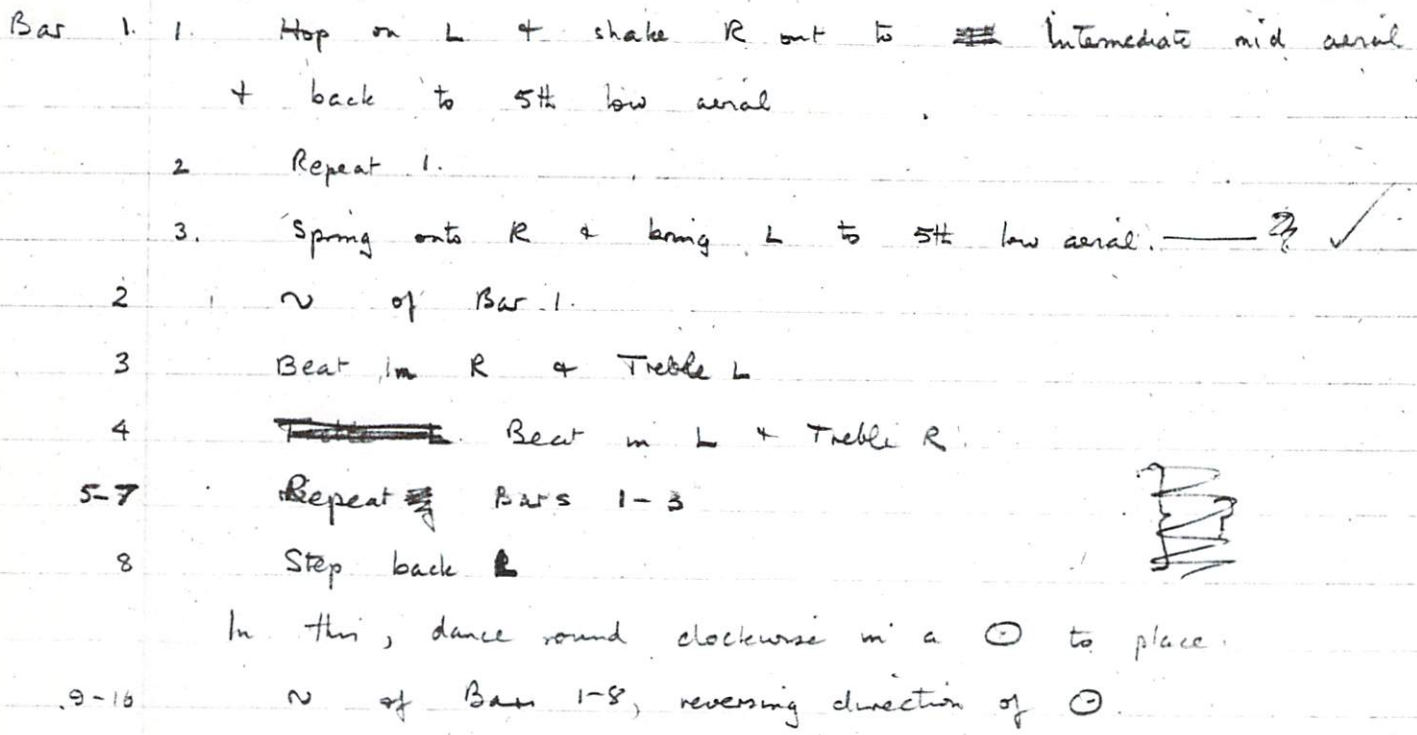 Bar 1. 1. Hop on L + shake R out to Intermediate mid aerial
+ back to 5th low aerial
2 Repeat 1.
3. Spring onto R + bring L to 5th low aerial. — ? ✓
2 ~ of Bar 1.
3 Beat in R + Treble L
4 Beat in L + Treble R.
5-7 Repeat Bars 1-3
8 Step back L
In this, dance round clockwise in a ⊙ to place.
9-16 ~ of Bars 1-8, reversing direction of ⊙.